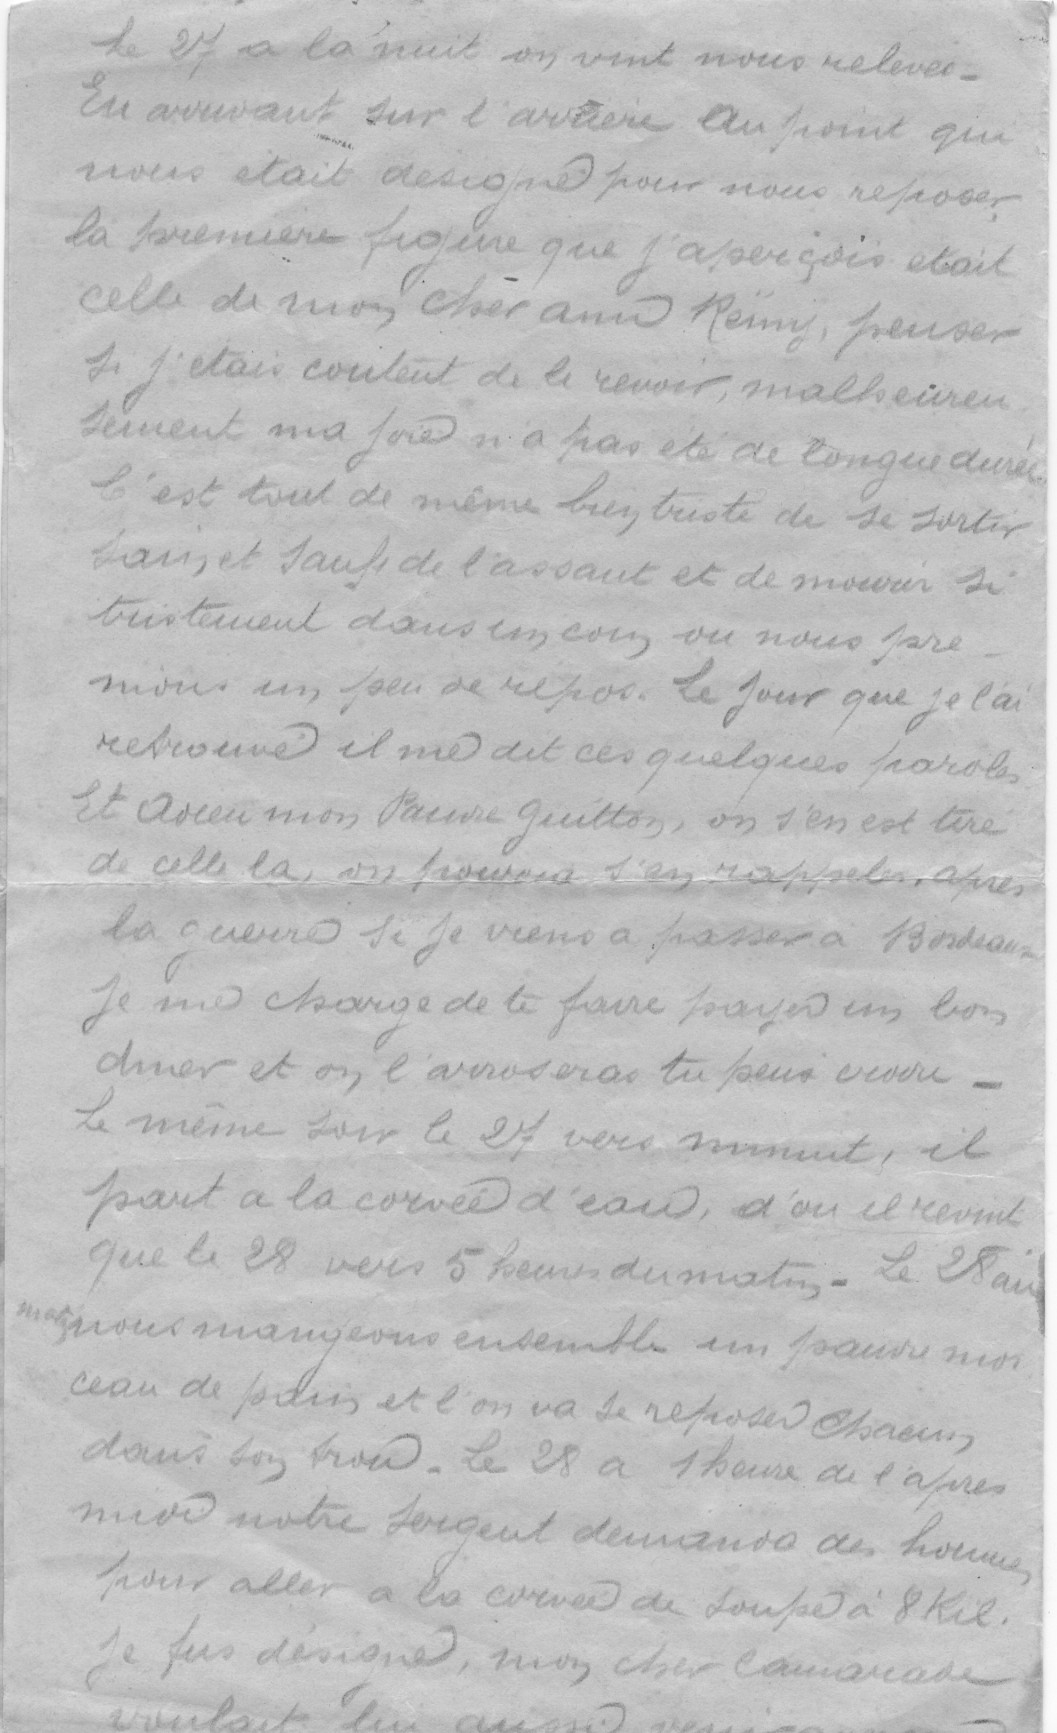 Le 27 a la nuit on vint nous relever -
En arrivant sur l'arrière Au point qui
nous était désigné pour nous reposer,
la premiere figure que j'aperçois etait
celle de mon cher ami Rémy, penser
si j'etais content de le revoir, malheureu
sement ma joie n'a pas été de longue durée.
C'est tout de même bien triste de se sortir
sain et sauf de l'assaut et de mourir si
tristement dans un coin ou nous pre-
nions un peu de repos. Le jour que je l'ai
retrouvé il me dit ces quelques paroles
Et mon Pauvre Guitton, on s'en est tiré
de celle la, on pourra s'en rappeler, apres
la guerre si je viens a passer à Bordeaux
je me charge de te faire payer un bon
diner et on l'arroseras tu peus croire -
Le même soir le 27 vers minuit, il
part a la corvée d'eau, d'ou il revint
que le 28 vers 5 heures du matin - Le 28 au
matin nous mangeons ensemble un pauvre mor
ceau de pain et l'on va se reposer chacun
dans son trou - Le 28 a 1 heure de l'apres
midi notre sergent demanda des hommes
pour aller a la corvée de soupe à 8 Kil.
je fus désigné, mon cher camarade
voulait lui aussi venir